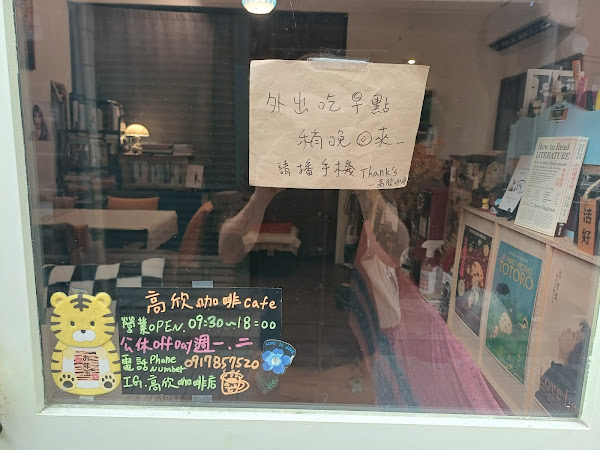 外出吃早點
稍晚回來
請撥手機 Thank's
高欣咖啡
高欣咖啡 Cafe
營業OPEN. 09:30~18:00
公休off Day週一、二
電話Phone Number 0917857520
IG.高欣咖啡店
How to Read
LITERATURE
TOTORO
活
好